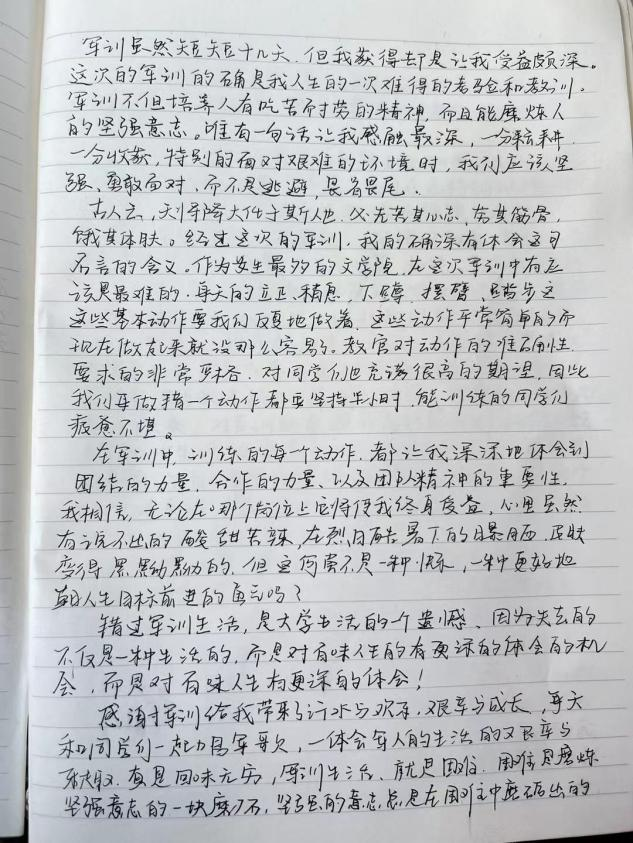 军训虽然短短十几天，但我获得却是让我受益颇深。
这次的军训的确是我人生的一次难得的考验和教训。
军训不但培养人有吃苦耐劳的精神，而且能磨炼人
的坚强意志。唯有一句话让我感触最深，一分耕耘
一分收获，特别的面对艰难的环境时，我们应该坚
强、勇敢面对，而不是逃避，畏首畏尾。
古人云，天将降大任于斯人也，必先苦其心志，劳其筋骨，
饿其体肤。经过这次的军训，我的确深有体会这句
名言的含义。作为女生最多的文学院，在这次军训中有应
该是最难的。每天的立正、稍息、下蹲、摆臂、踏步这
这些基本动作要我们反复地做着，这些动作平常简单的而
现在做起来就没那么容易了。教官对动作的准确性
要求的非常严格，对同学们也充满很高的期望，因此
我们每做错一个动作都要坚持半小时，能训练的同学们
疲惫不堪。
在军训中，训练的每个动作，都让我深深地体会到
团结的力量，合作的力量，以及团队精神的重要性，
我相信，无论在哪个岗位上它将使我终身受益，心里虽然
有说不出的酸甜苦辣，在烈日酷暑下的暴晒，皮肤
变得黑黝黝的，但这何尝不是一种快乐，一种更好地
朝人生目标前进的勇气吗？
错过军训生活，是大学生活的一个遗憾、因为失去的
不仅是一种生活的，而是对百味人生的有更深的体会的机
会，而是对百味人生有更深的体会！
感谢军训给我带来了汗水与欢乐，艰辛与成长，每天
和同学们一起唱军歌，一体会军人的生活的艰辛与
真是回味无穷，军训生活、就是困难，困难是磨炼
坚强意志的一块磨刀石，坚强的意志总是在困难中磨砺出的